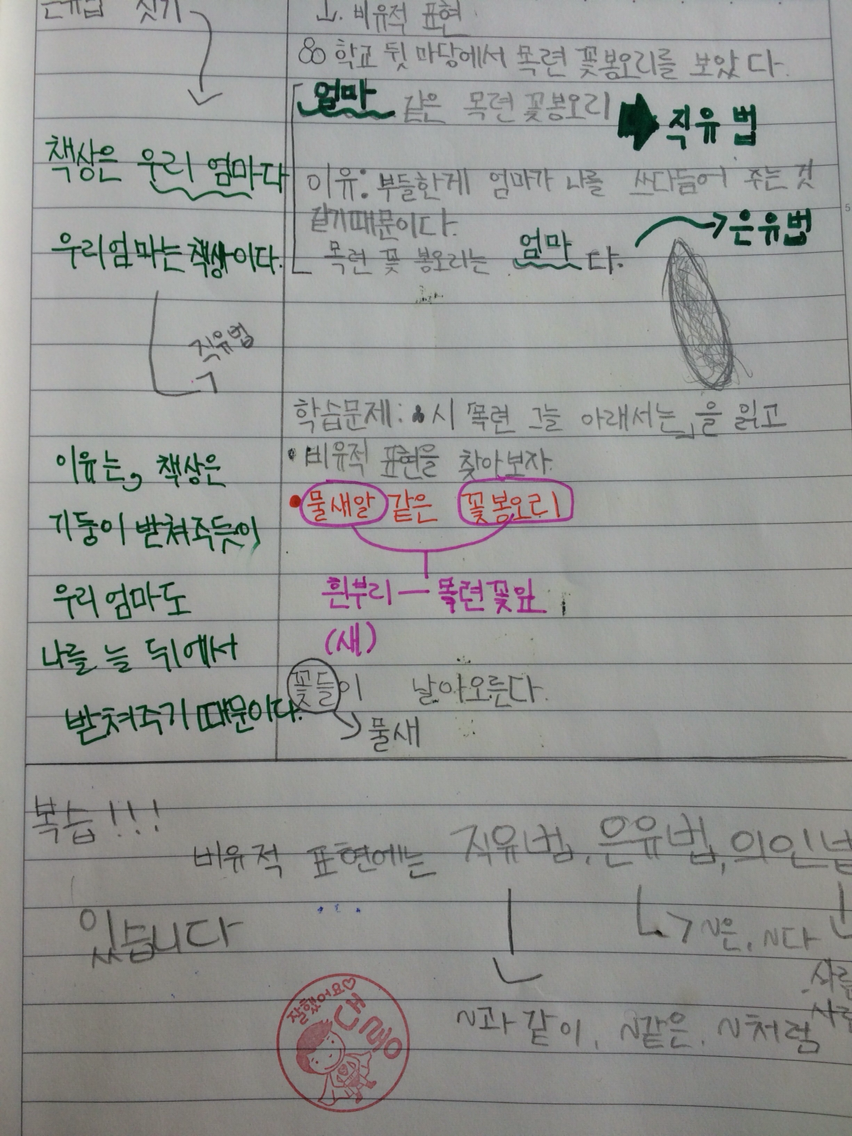 은유법 짓기
책상은 우리 엄마다
우리엄마는 책상이다.
직유법
이유는, 책상은
기둥이 받쳐주듯이
우리 엄마도
나를 늘 뒤에서
받쳐주기 때문이다.
비유적 표현
학교 뒷 마당에서 목련 꽃봉오리를 보았다.
엄마 같은 목련 꽃봉오리 직유법
이유: 부들한게 엄마가 나를 쓰다듬어 주는 것
같기때문이다.
은유법
목련 꽃 봉오리는 엄마다.
학습문제: 시 목련 그늘 아래서는」을 읽고
비유적 표현을 찾아보자.
물새알 같은 꽃봉오리
흰부리 — 목련꽃잎
(새)
꽃들이 날아오른다.
물새
복습!!!
비유적 표현에는 직유법, 은유법, 의인법
있습니다
~은, ~다
~과 같이, ~같은, ~처럼
잘했어요♡